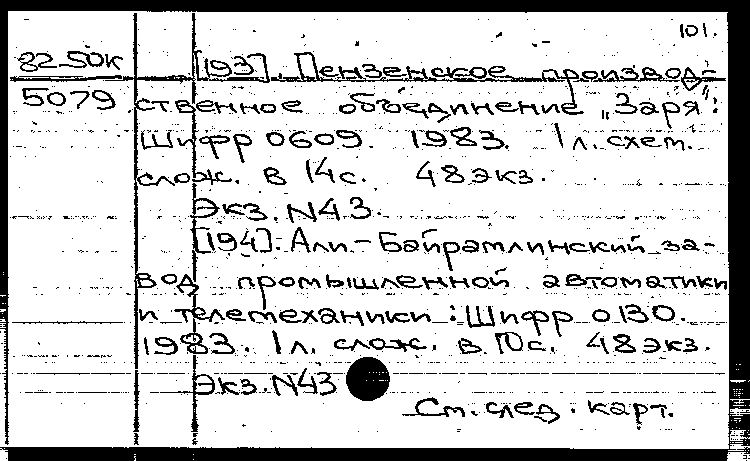 101.
82-50к [193]. Пензенское производ-
5079 ственное объединение „Заря":
Шифр 0609. 1983. 1 л. схем.
слож. в 14 с. 48 экз.
Экз. N43.
[194]. Али-Байрамлинский за-
вод промышленной автоматики
и телемеханики: Шифр 0130.
1983. 1 л. слож. в 10 с. 48 экз.
Экз. N43
См. след. карт.